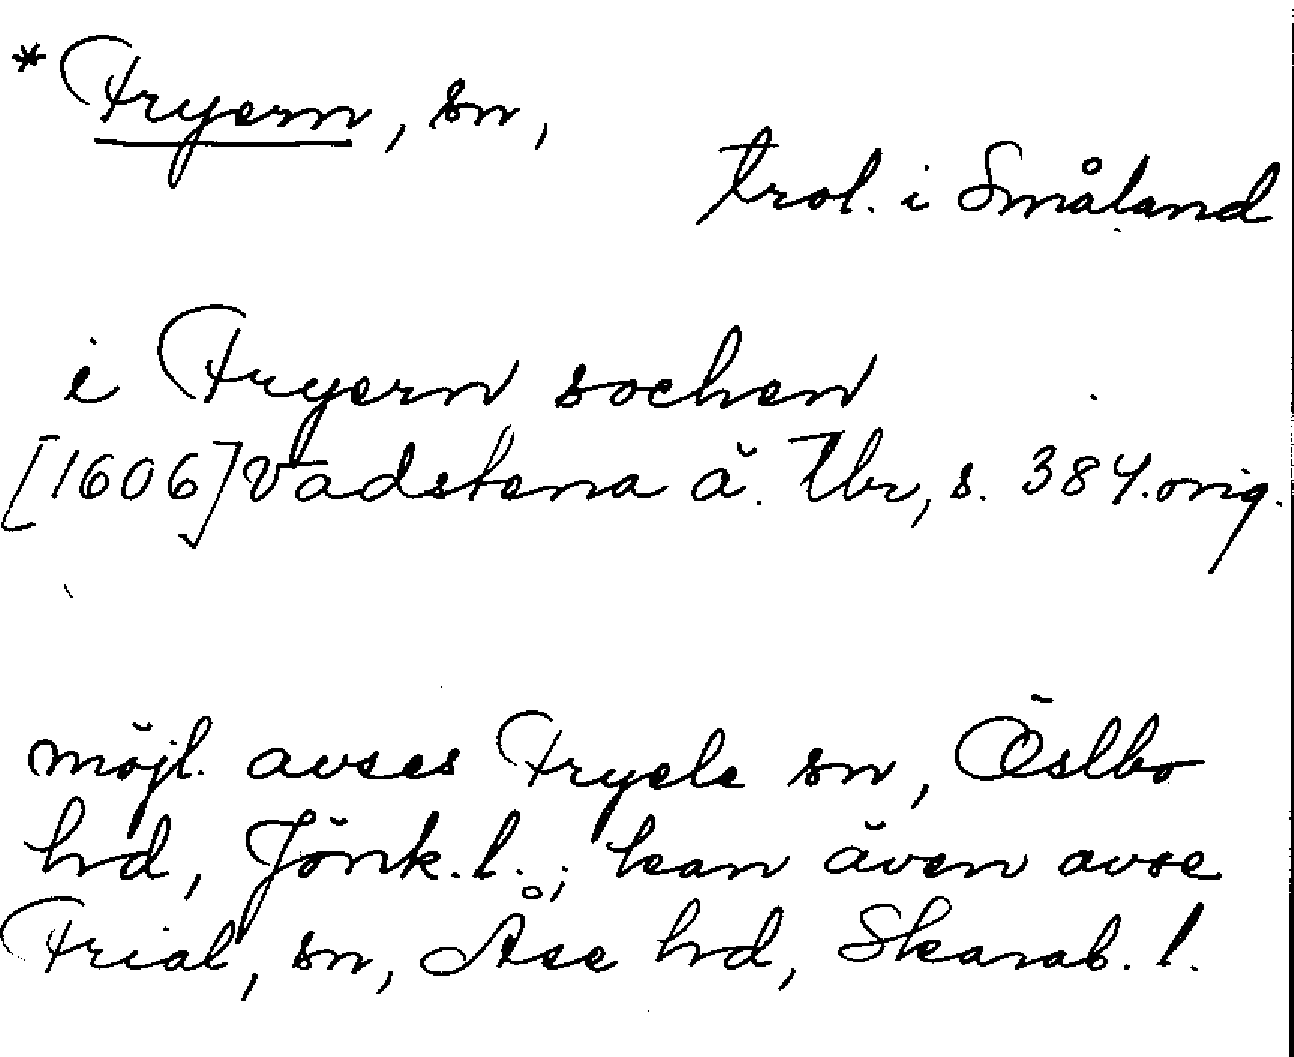 *Fryern, sn,
trol. i Småland
i Fryern sochen
[1606] Vadstena ä. Tbr, s. 384. orig.
möjl. avses Fryele sn, Östbo
hrd, Jönk. l.; kan även avse
Friel, sn, Åse hrd, Skarab. l.